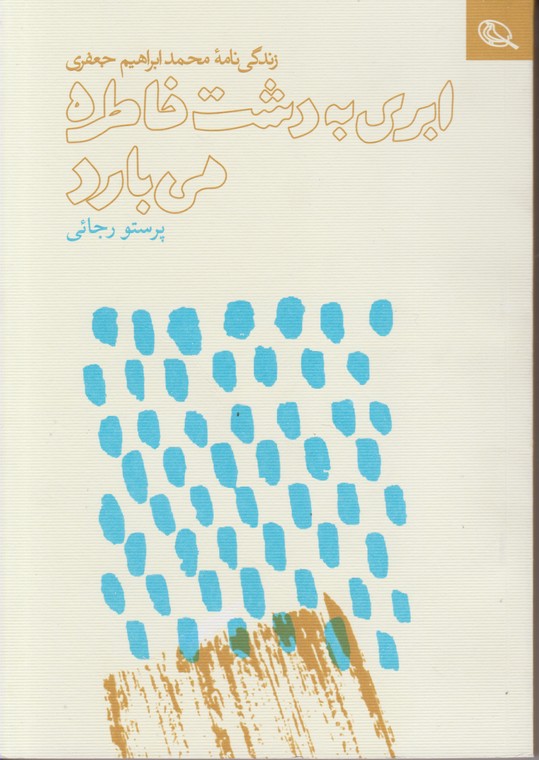 زندگی‌نامهٔ محمد ابراهیم جعفری
ابری به دشت خاطره
می‌بارد
پرستو رجائی